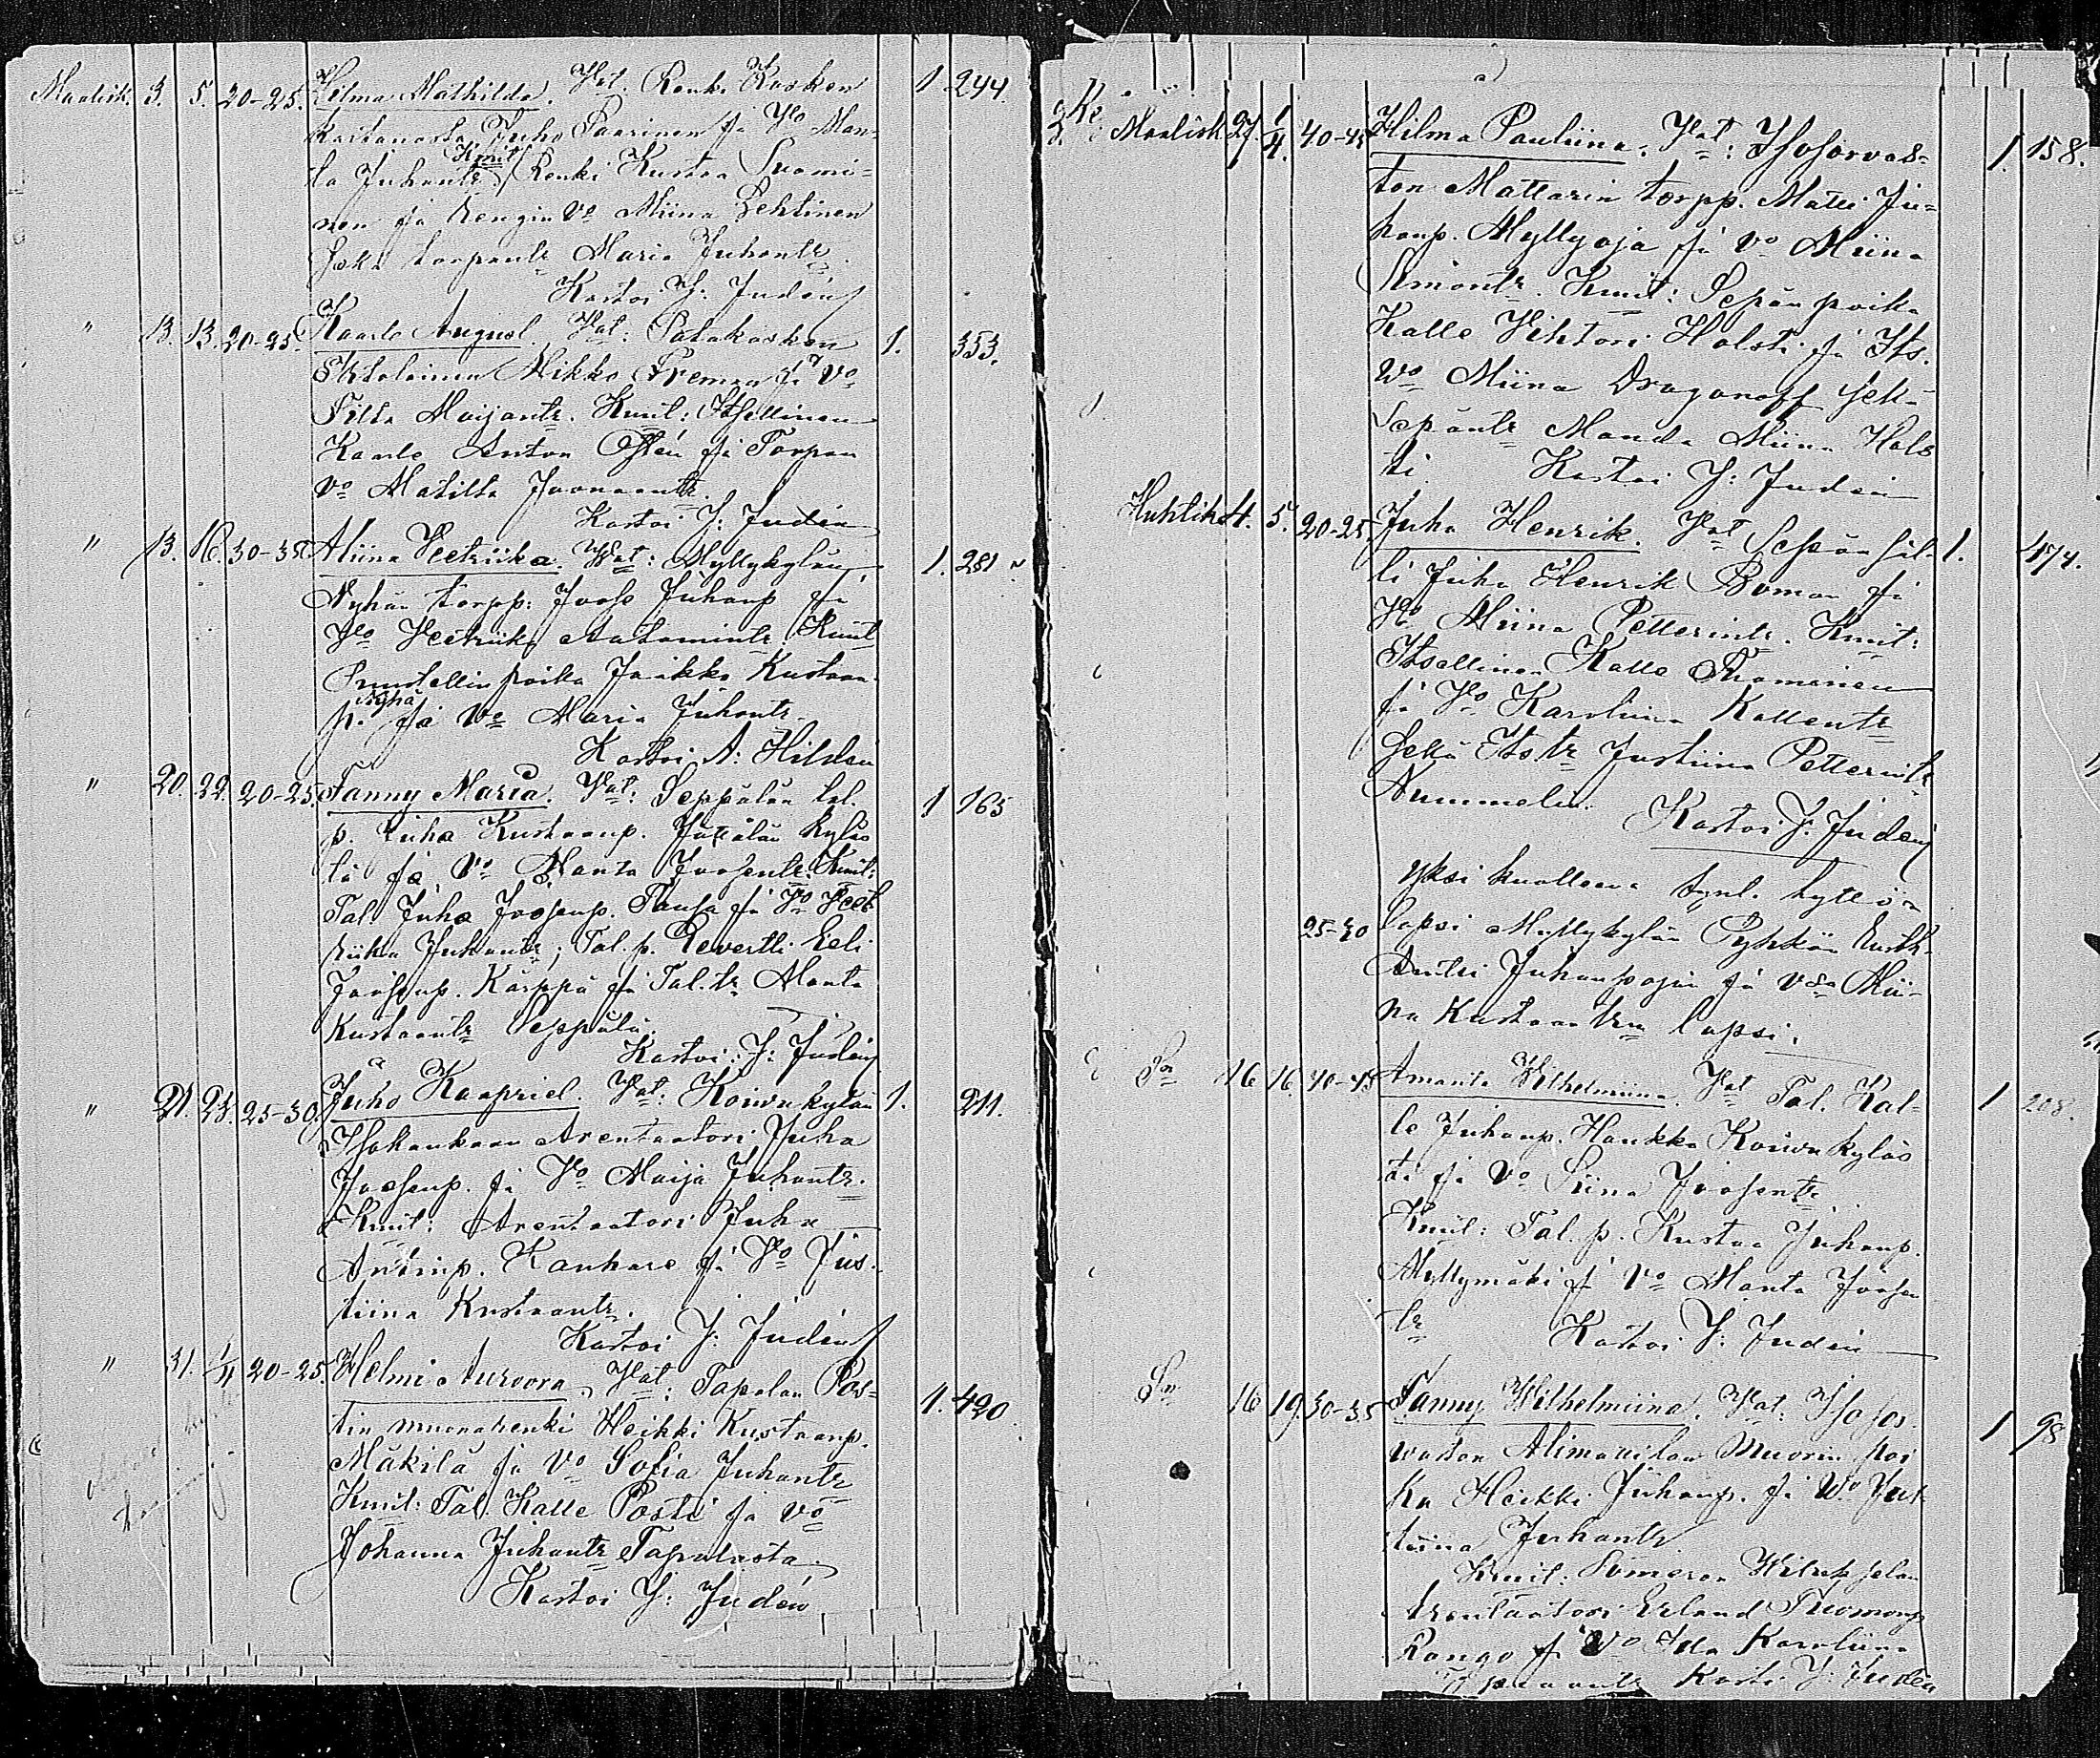 Maalisk. 3. 5. 20-25. Hilma Mathilda. Vat. Renki Kosken 1 244.
kartanosta Juho Saarinen ja Vo Man-
ta Juhontr. Kmit: Renki Kustaa Suomi-
nen ja rengin vo Miina Lehtinen
sekä torpantr Maria Juhontr.
Kastoi J: Judén
" 13. 13. 20-25. Kaarlo August. Vat: Patakosken 1. 353.
Mikko Freeman ja Vo
Maijantr. Kmit: Itsellinen
Kaarlo Anton Ostén ja Torpan
Vo Matilta Joonaantr.
Kastoi J: Judén
" 13. 16. 30-35. Miina Veetriika. Vat: Myllykylän 1. 281.
Nyhän torpp: Joose Juhanp ja
Vo Veetriika Aatamintr. Kmit
poika Jaakko Kustaa-
p. Nyhä ja Vo Maria Juhontr.
Kastoi A: Hildén
" 20. 22. 20-25. Fanny Maria. Vat: Seppälän tal. 1 165
p. Juha Kustaanp. kyläs-
tä ja Vo Manta Joosentr. Kmit:
Tal. Juha Joosenp. ja Vo Veet-
riika Juhontr; Tal. p. Revertti Eeli
Joosenp. Kärppä ja Tal. tr Manta
Kustaantr Seppälä.
Kastoi: J: Judén
" 21. 23. 25-30. Juho Kaapriel. Vat: Koivukylän 1. 211.
Isohankaan Arentaatori Juha
Joosenp. ja Vo Maija Juhontr.
Kmit: Arentaatori Juha
Antinp. Kanhare ja Vo Jus-
tiina Kustaantr.
Kastoi J: Judén
" 31. 1/4 20-25. Helmi Auroora. Vat: Tapalan Pos- 1. 420
tin muonarenki Heikki Kustaanp.
Mäkilä ja Vo Sofia Juhontr
Kmit: Tal. Kalle Posti ja Vo
Johanna Juhontr Tapalasta.
Kastoi J: Judén
Maalisk 27. 1/4. 40-45 Hilma Pauliina. Vat: Isosorvas- 1 158.
ton Mattarin torpp. Matti Ju-
hanp. Myllyoja ja Vo Miina
Simontr. Kmit: Sepän poika
Kalle Vihtori Holsti ja Its.
Vo Miina Draganoff sekä
Sepäntr Manda Miina Hols
ti Kastoi J: Judén
Huhtik. 4. 5. 20-25. Juha Henrik. Vat Sepän säl- 1. 474.
li Juha Henrik Boman ja
Vo Miina Petterintr. Kmit:
Itsellinen Kalle Tuominen
ja Vo Karoliina Kallentr
sekä Itstr Justiina Petterintr
Nummelin.
Kastoi J: Judén
Yksi kuolleena synt. tyttö-
25-30 lapsi Myllykylän Pyhkön
Antti Juhanpojan ja von Mii-
na Kustaantrn lapsi.
Sm 16 16. 40-45 Amanta Vilhelmiina. Vat Tal. Kal- 1 208.
le Juhanp. Haukka Koivukyläs
tä ja Vo Siina Joosentr
Kmit: Tal. p. Kustaa Juhanp.
Myllymäki ja Vo Manta Joosen
tr Kastoi J: Judén
Sm 16 19. 30-35 Fanny Wilhelmiina. Vat: Isosor- 1 98
waston Alimaailan Muorin poi
ka Heikki Juhanp. ja Wo Jus-
tiina Juhontr
Kmit: Someron
Arentaatori Erland Tuomonp
Rango ja Vo Ida Karoliina
Kasti J: Judén